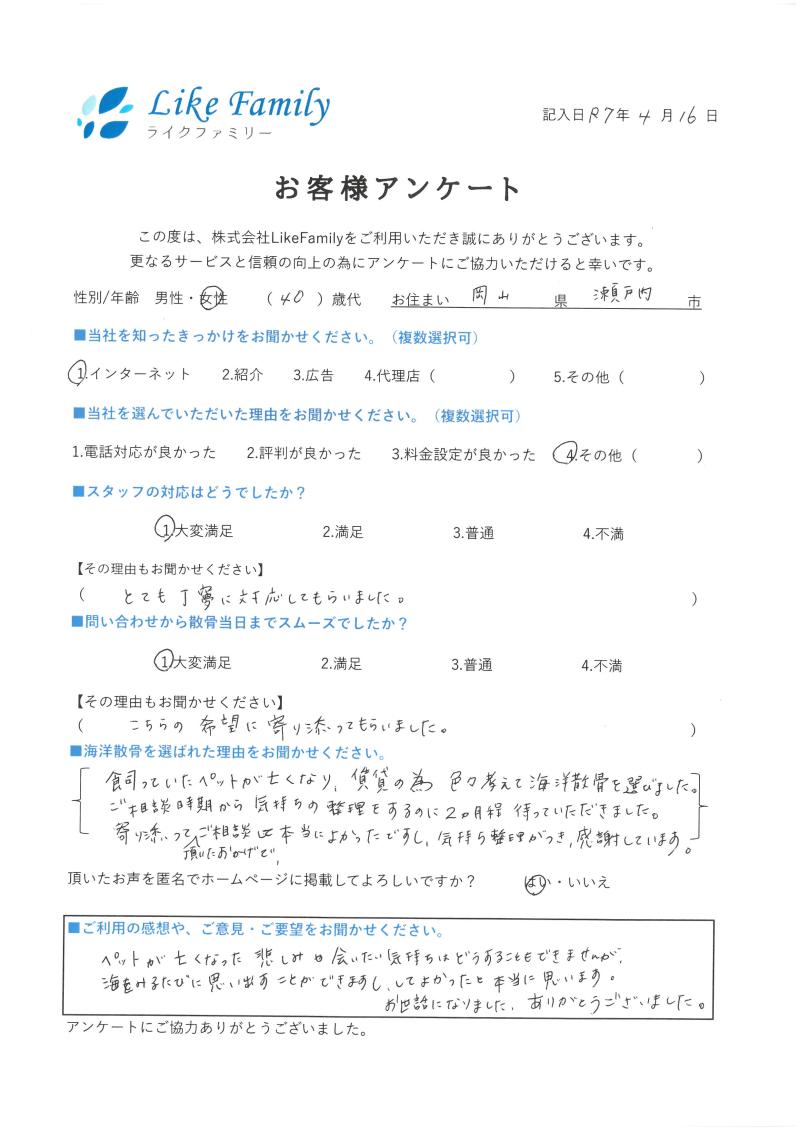 Like Family
ライクファミリー
記入日R7年 4 月16 日
お客様アンケート
この度は、株式会社LikeFamilyをご利用いただき誠にありがとうございます。
更なるサービスと信頼の向上の為にアンケートにご協力いただけると幸いです。
性別/年齢 男性・女性 ( 40 ) 歳代 お住まい 岡山 県 瀬戸内 市
■当社を知ったきっかけをお聞かせください。（複数選択可）
1.インターネット 2.紹介 3.広告 4.代理店 ( ) 5.その他 ( )
■当社を選んでいただいた理由をお聞かせください。（複数選択可）
1.電話対応が良かった 2.評判が良かった 3.料金設定が良かった 4.その他 ( )
■スタッフの対応はどうでしたか？
1.大変満足 2.満足 3.普通 4.不満
【その理由もお聞かせください】
( とても丁寧に対応してもらいました。 )
■問い合わせから散骨当日までスムーズでしたか？
1.大変満足 2.満足 3.普通 4.不満
【その理由もお聞かせください】
( こちらの希望に寄り添ってもらいました。 )
■海洋散骨を選ばれた理由をお聞かせください。
飼っていたペットが亡くなり、賃貸の為 色々考えて海洋散骨を選びました。
ご相談時期から気持ちの整理をするのに2ヵ月程 待っていただきました。
寄り添ってご相談 本当によかったですし、気持ち整理がつき、感謝しています。
頂いたおかげで、
頂いたお声を匿名でホームページに掲載してよろしいですか？ はい・いいえ
■ご利用の感想や、ご意見・ご要望をお聞かせください。
ペットが亡くなった悲しみや会いたい気持ちはどうすることもできませんが、
海をみるたびに思い出すことができますし、してよかったと本当に思います。
お世話になりました。ありがとうございました。
アンケートにご協力ありがとうございました。